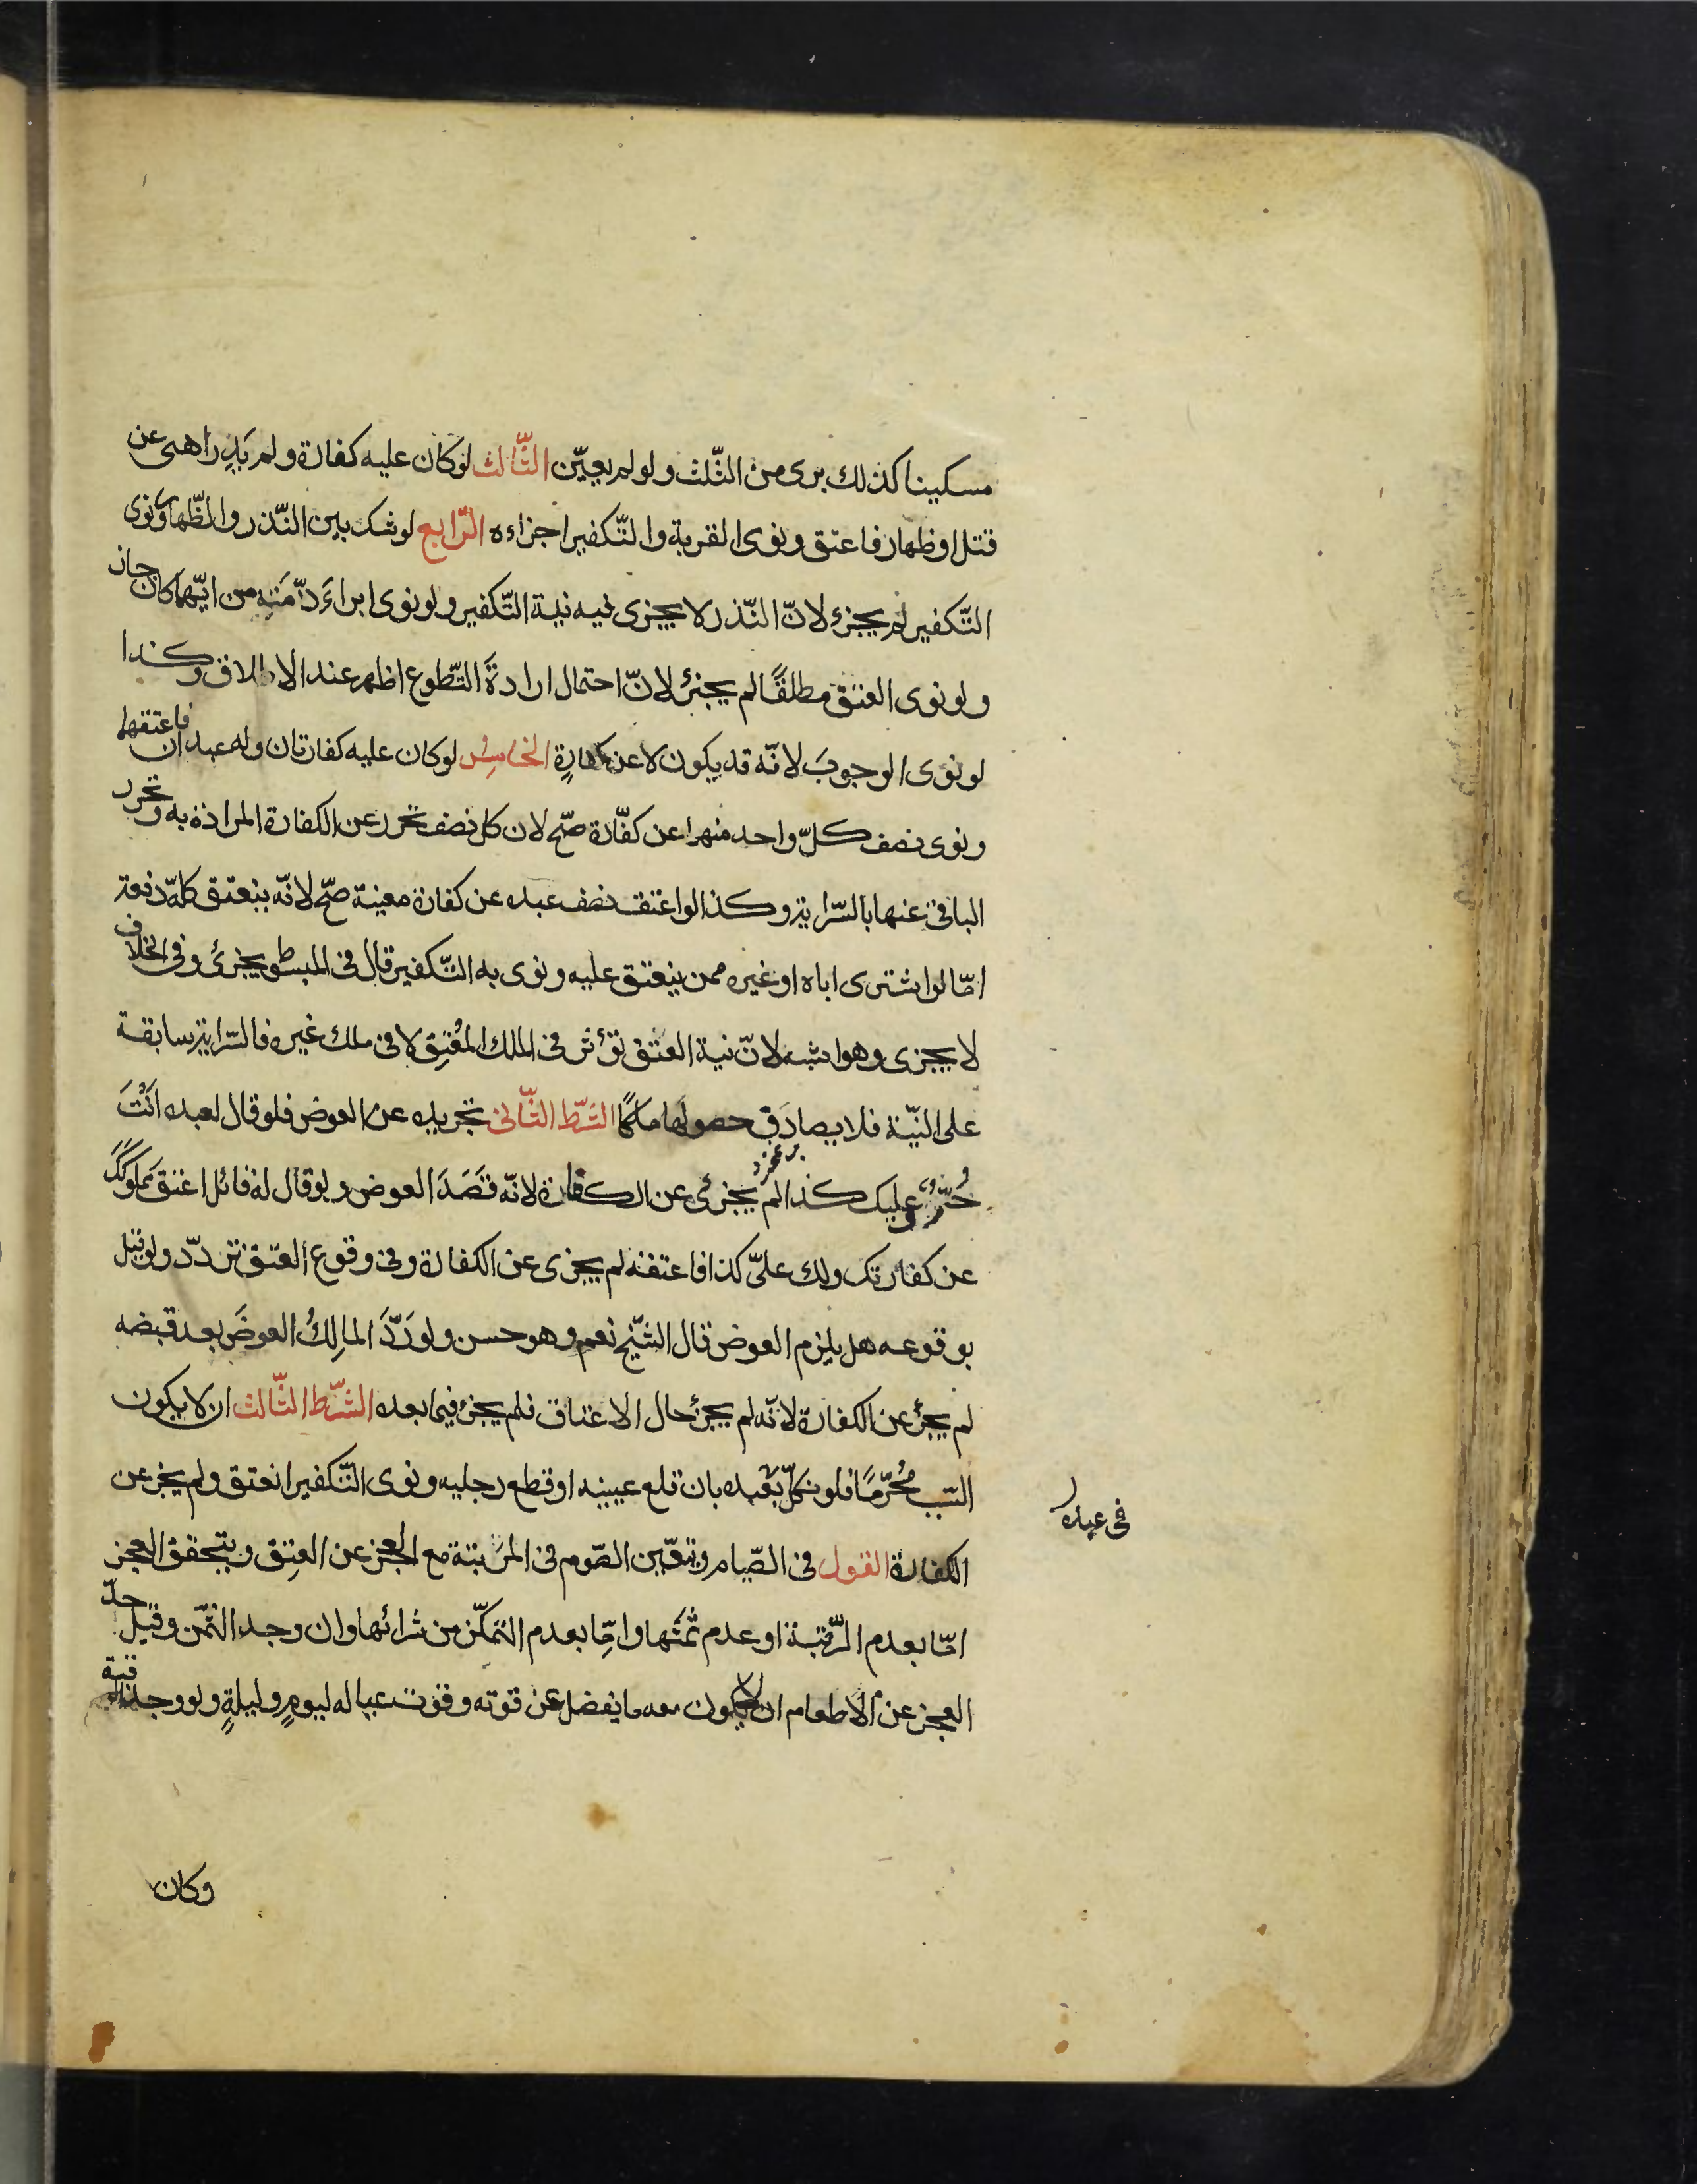 مسكينا كذلك برى من الثّلث ولو لم يعيّن الثّالث لوكان عليه كفارة ولم يَدرِ اهى عن
قتل او ظهار فاعتق ونوى القربة والتّكفير اجزاءه الرّابع لوشك بين النّذر والظّهار ونوى
التّكفير لم يجزء لانّ النّذر لا يجزى فيه نية التّكفير ولو نوى ابراءَ ذمّتِه من ايّهما كان جاز
ولو نوى العتق مطلقًا لم يجزئ لانّ احتمال ارادةَ التّطوع اظهر عند الاطلاق وكذا
لو نوى الوجوبَ لانّه قد يكون لا عن كفارةٍ الخامسُ لوكان عليه كفارتان وله عبدان فاعتقهما
ونوى نصف كلّ واحد منهما عن كفّارة صحّ لان كل نصف تحرر عن الكفارة المرادة به وتحرر
الباقى عنها بالسّراية وكذا لو اعتق نصف عبده عن كفارة معينة صحّ لانّه ينعتق كلّه دفعة
امّا لو اشترى اباه او غيره ممن ينعتق عليه ونوى به التّكفير قال فى المبسوط يجزئ وفى الخلاف
لا يجزى وهو اشبه لانّ نية العتق تؤثر فى الملك المُعْتِق لا فى ملك غيره فالسّراية سابقة
على النيّة فلا يصادَف حصولها ملكًا الشّرط الثّانى تجريده عن العوض فلو قال لعبده انْتَ
حُرّ وعليك كذا لم يجزئ عن الكفارة لانّه قَصَدَ العوض ولو قال له قائل اعتق مَملوكَكَ
عن كفارتك ولك علىّ كذا فاعتقه لم يجزى عن الكفارة وفى وقوع العتق تردّد ولو قيل
بوقوعه هل يلزم العوض قال الشّيخ نعم وهو حسن ولو رَدَّ المالِكُ العوضَ بعد قبضه
لم يجزئ عن الكفارة لانّه لم يجزئ حال الاعتاق فلم يجزء فيما بعده الشّرط الثّالث ان لا يكون
السّبب مُحرّمًا فلو نكلّ بعبده بان قلع عينيه او قطع رجليه ونوى التّكفير انعتق ولم يجز عن
فى عبده
الكفارة القول فى الصّيام ويتعّين الصّوم فى المرَتبّة مع العجز عن العتِق ويتحقق العجز
امّا بعدم الرّقبة او عدم ثمَنها وامّا بعدم التمكّن من شرائها وان وجد الثّمن وقيل حدّ
العجز عن الاطعام ان لا يكون معه ما يفضل عن قوته وقوت عياله ليومٍ وليلةٍ ولو وجد الرقبة
وكان